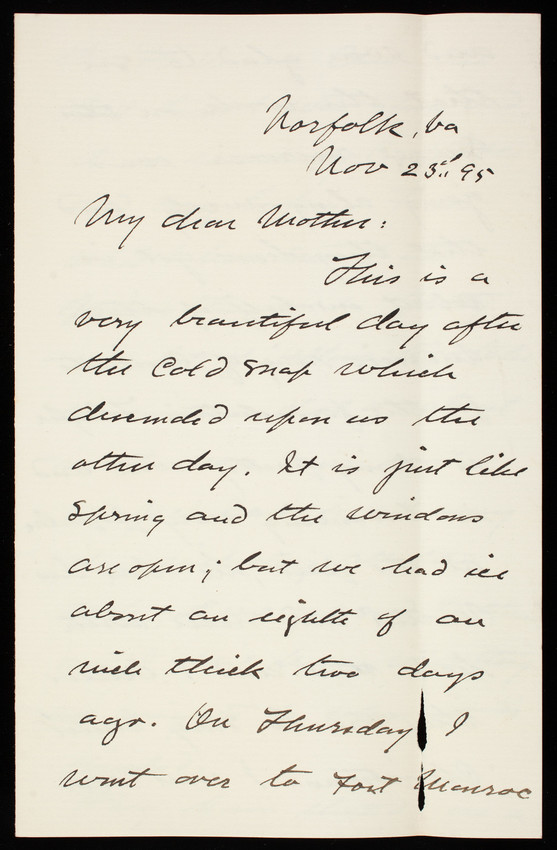 Norfolk, Va
Nov 23rd 95
My dear Mother:
This is a
very beautiful day after
the cold snap which
decended upon us the
other day. It is just like
Spring and the windows
are open; but we had ice
about an eighth of an
inch thick two days
ago. On Thursday I
went over to Fort Monroe